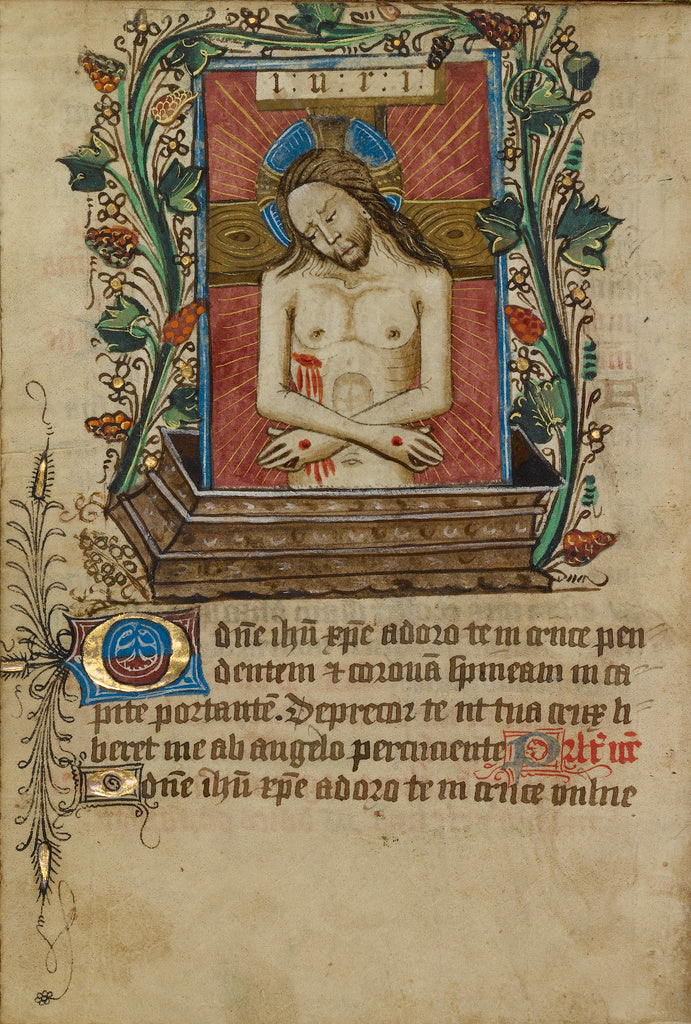 i:n:r:i:
O dn̄e ih̄u xp̄e adoro te in cruce pen
dentem ⁊ coronā spineam in ca
pite portantē. Deprecor te ut tua crux li
beret me ab angelo percuciente Pr̄ nr̄
O dn̄e ih̄u xp̄e adoro te in cruce vulne